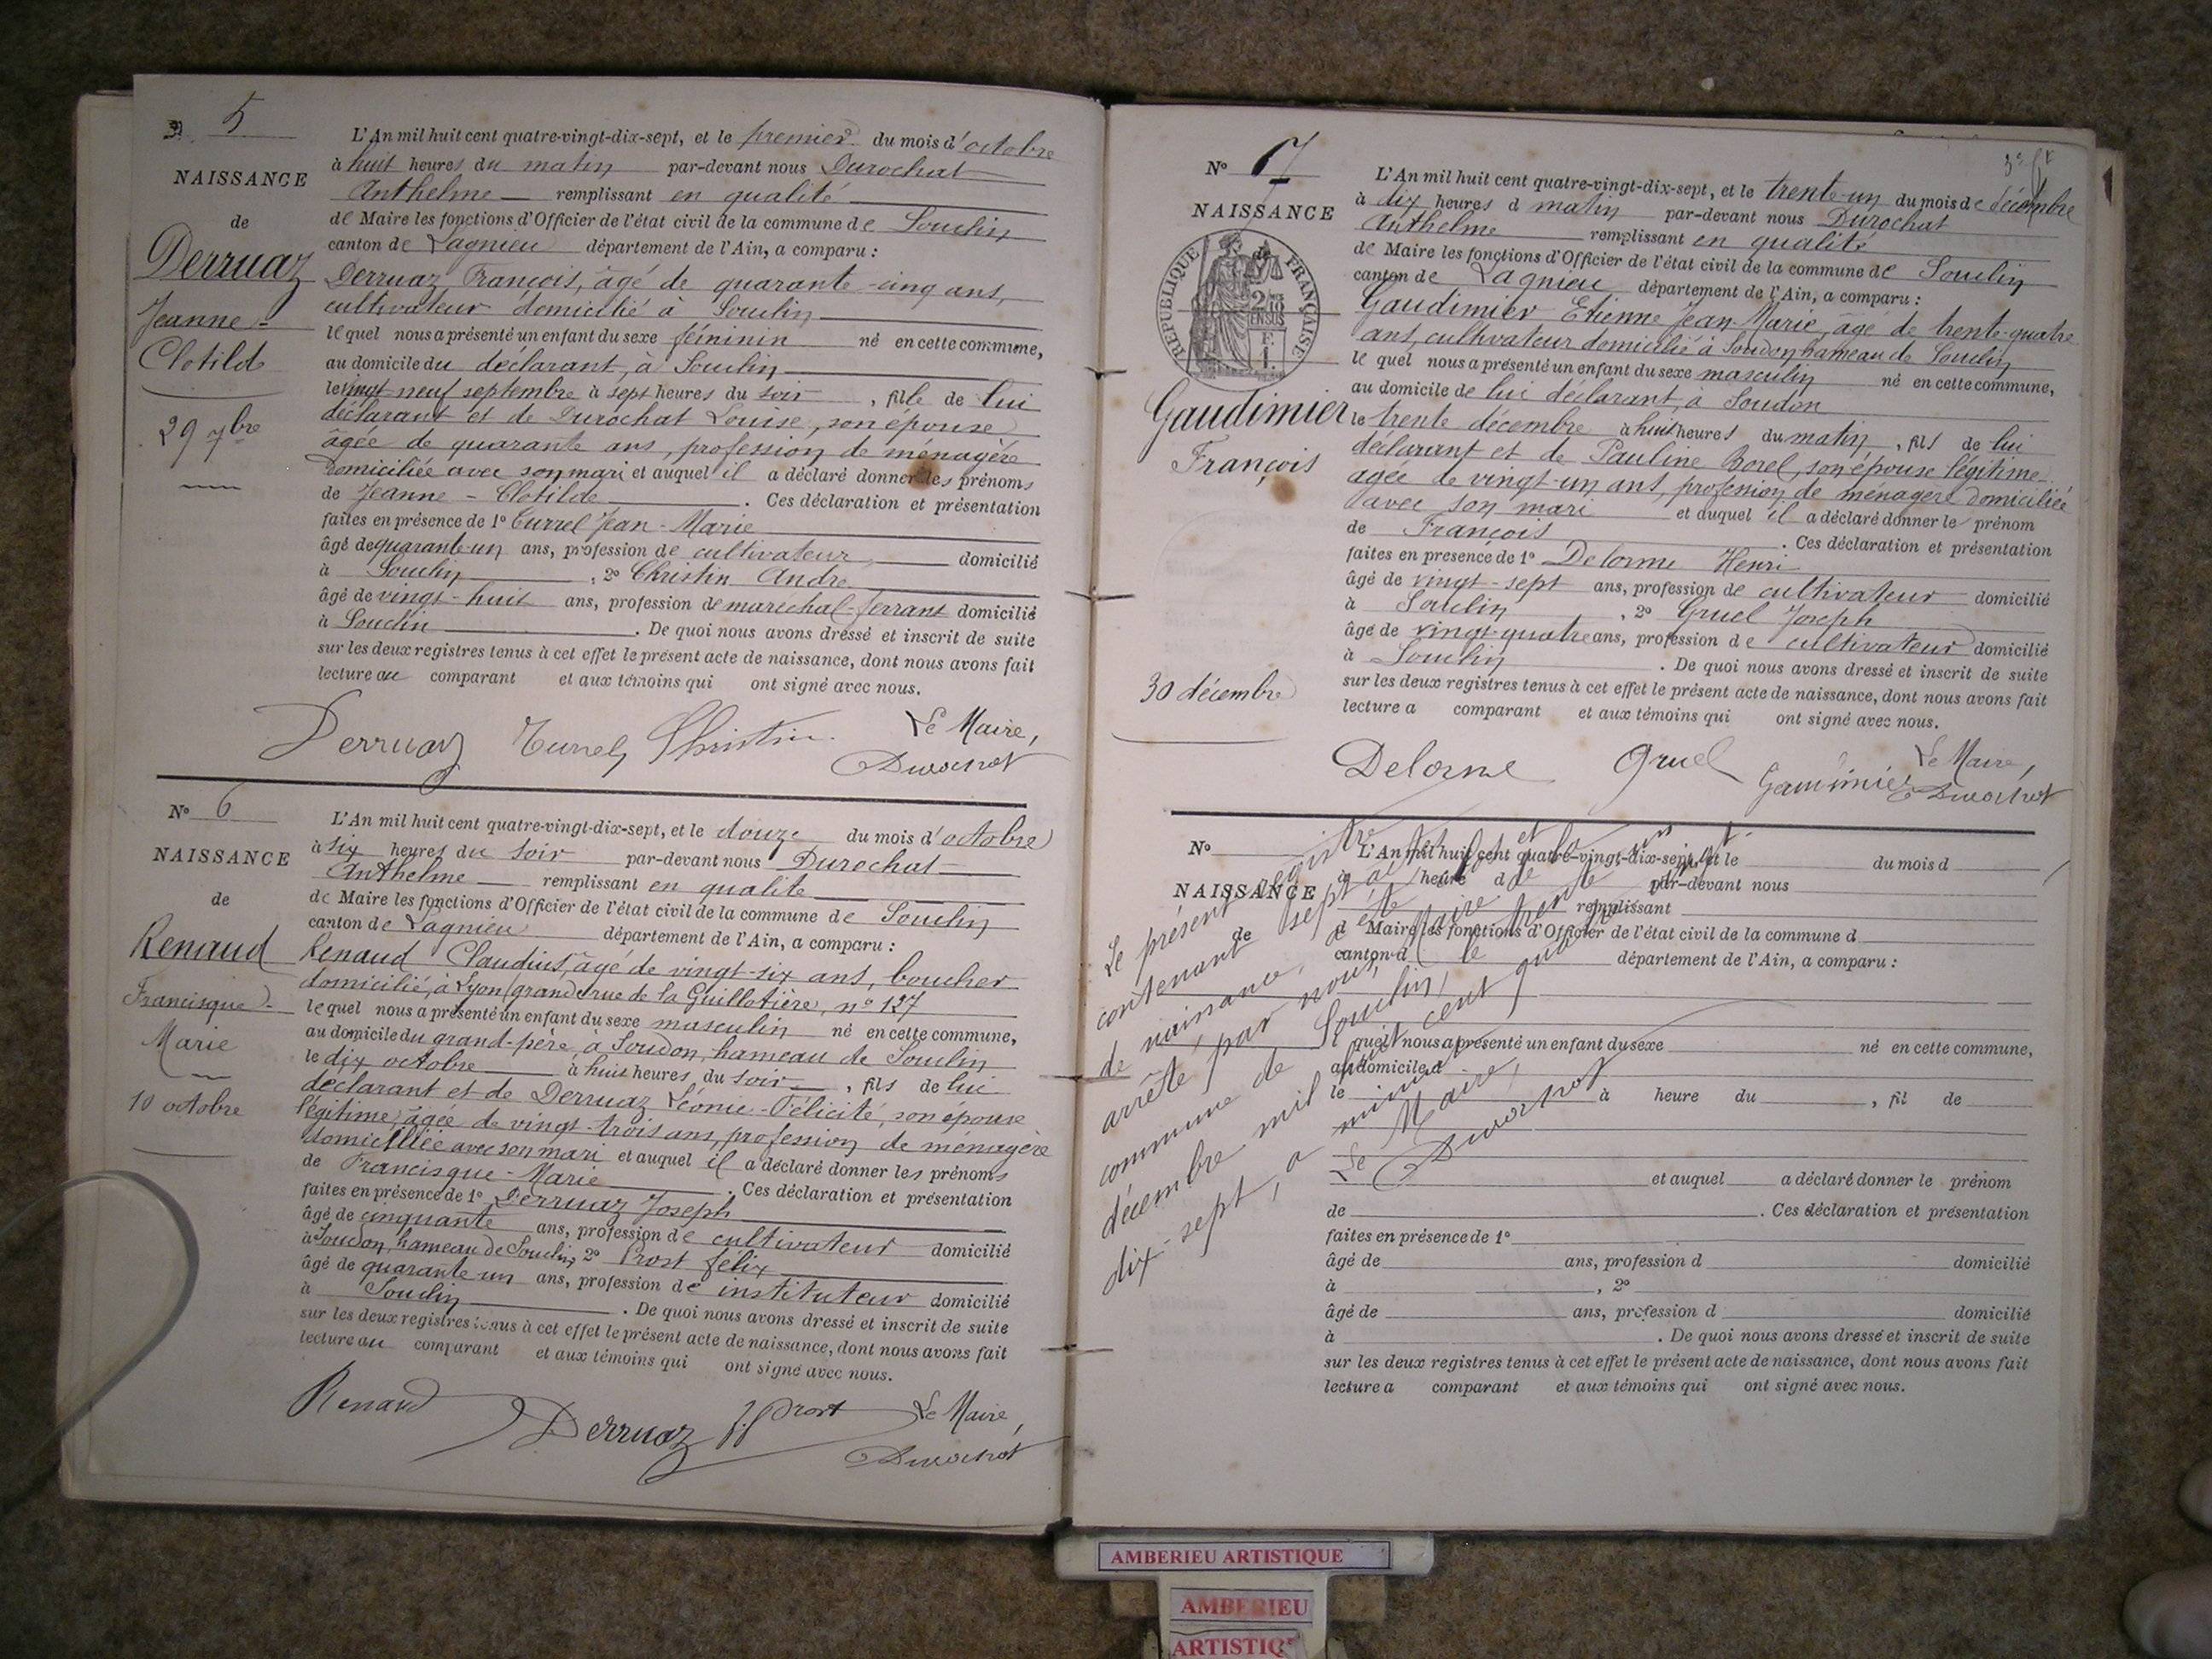 N° 5
NAISSANCE
de
Derruaz
Jeanne-
Clotilde
29 7bre
L'An mil huit cent quatre-vingt-dix-sept, et le premier du mois d'octobre
à huit heures du matin par-devant nous Durochat
Anthelme remplissant en qualité
de Maire les fonctions d'Officier de l'état civil de la commune de Souclin
canton de Lagnieu département de l'Ain, a comparu :
Derruaz, François, âgé de quarante-cinq ans,
cultivateur domicilié à Souclin
lequel nous a présenté un enfant du sexe féminin né en cette commune,
au domicile du déclarant, à Souclin
le vingt-neuf septembre à sept heures du soir, fille de lui
déclarant et de Durochat Louise, son épouse
âgée de quarante ans, profession de ménagère
domiciliée avec son mari et auquel il a déclaré donner les prénoms
de Jeanne-Clotilde. Ces déclaration et présentation
faites en présence de 1° Currel Jean-Marie
âgé de quarante-un ans, profession de cultivateur, domicilié
à Souclin, 2° Christin André
âgé de vingt-huit ans, profession de maréchal-ferrant domicilié
à Souclin. De quoi nous avons dressé et inscrit de suite
sur les deux registres tenus à cet effet le présent acte de naissance, dont nous avons fait
lecture au comparant et aux témoins qui ont signé avec nous.
Derruaz Currel Christin Le Maire,
Durochat
N° 6
NAISSANCE
de
Renaud
Francisque-
Marie
10 octobre
L'An mil huit cent quatre-vingt-dix-sept, et le douze du mois d'octobre
à six heures du soir par-devant nous Durochat
Anthelme remplissant en qualité
de Maire les fonctions d'Officier de l'état civil de la commune de Souclin
canton de Lagnieu département de l'Ain, a comparu :
Renaud Claudius, âgé de vingt-six ans, boucher
domicilié, à Lyon, grande rue de la Guillotière, n° 137
lequel nous a présenté un enfant du sexe masculin né en cette commune,
au domicile du grand-père, à Soudon, hameau de Souclin
le dix octobre à huit heures du soir, fils de lui
déclarant et de Derruaz Léonie-Félicité, son épouse
légitime, âgée de vingt-trois ans, profession de ménagère
domiciliée avec son mari et auquel il a déclaré donner les prénoms
de Francisque-Marie. Ces déclaration et présentation
faites en présence de 1° Derruaz Joseph
âgé de cinquante ans, profession de cultivateur domicilié
à Soudon, hameau de Souclin, 2° Prost félix
âgé de quarante un ans, profession de instituteur domicilié
à Souclin. De quoi nous avons dressé et inscrit de suite
sur les deux registres tenus à cet effet le présent acte de naissance, dont nous avons fait
lecture au comparant et aux témoins qui ont signé avec nous.
Renaud Derruaz Prost Le Maire,
Durochat
N° 7
NAISSANCE
de
RÉPUBLIQUE FRANÇAISE
Gaudimier
François
30 décembre
L'An mil huit cent quatre-vingt-dix-sept, et le trente-un du mois de décembre
à dix heures d matin par-devant nous Durochat
Anthelme remplissant en qualité
de Maire les fonctions d'Officier de l'état civil de la commune de Souclin
canton de Lagnieu département de l'Ain, a comparu :
Gaudimier Etienne Jean-Marie, âgé de trente-quatre
ans, cultivateur domicilié à Soudon hameau de Souclin
lequel nous a présenté un enfant du sexe masculin né en cette commune,
au domicile de lui déclarant, à Soudon
le trente décembre à huit heures du matin, fils de lui
déclarant et de Pauline Borel, son épouse légitime
agée de vingt-un ans, profession de ménagère domiciliée
avec son mari et auquel il a déclaré donner le prénom
de François. Ces déclaration et présentation
faites en présence de 1° Delorme Henri
âgé de vingt-sept ans, profession de cultivateur domicilié
à Souclin, 2° Gruel Joseph
âgé de vingt-quatre ans, profession de cultivateur domicilié
à Souclin. De quoi nous avons dressé et inscrit de suite
sur les deux registres tenus à cet effet le présent acte de naissance, dont nous avons fait
lecture a comparant et aux témoins qui ont signé avec nous.
Delorme Gruel Gaudimier Le Maire,
Durochat
N°
NAISSANCE
de
L'An mil huit cent quatre-vingt-dix-sept, et le du mois d
à heure d par-devant nous
remplissant
d Maire les fonctions d'Officier de l'état civil de la commune d
canton d département de l'Ain, a comparu :
quel nous a présenté un enfant du sexe né en cette commune,
au domicile d
le à heure du , fil de
et auquel a déclaré donner le prénom
de . Ces déclaration et présentation
faites en présence de 1°
âgé de ans, profession d domicilié
à , 2°
âgé de ans, profession d domicilié
à . De quoi nous avons dressé et inscrit de suite
sur les deux registres tenus à cet effet le présent acte de naissance, dont nous avons fait
lecture a comparant et aux témoins qui ont signé avec nous.
Le présent registre
contenant sept actes
de naissance, a été clos et
arrêté par nous, Maire de la
commune de Souclin, le trente un
décembre mil huit cent quatre-vingt-
dix-sept, à minuit.
Le Maire,
Durochat
AMBERIEU ARTISTIQUE
AMBERIEU
ARTISTIQ